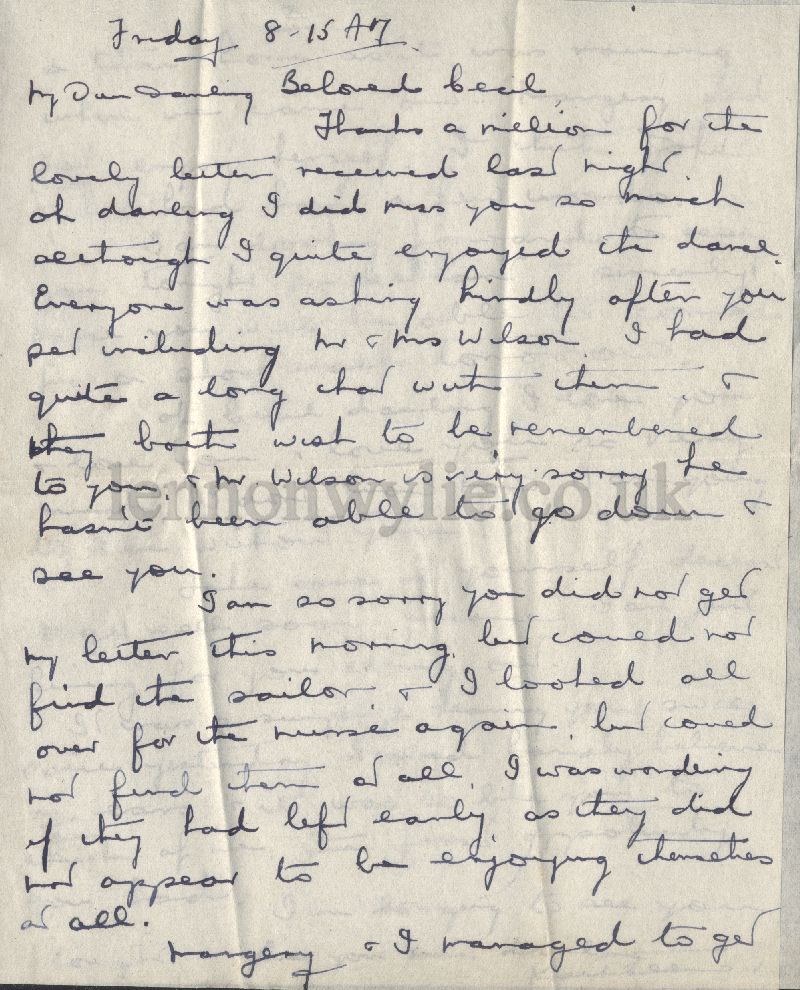 Friday 8-15 AM.
My Dear Darling Beloved Cecil,
Thanks a million for the
lovely letter received last night.
oh darling I did miss you so much
although I quite enjoyed the dance.
Everyone was asking kindly after you
pet including Mr & Mrs Wilson. I had
quite a long chat with them. &
they both wish to be remembered
to you. & Mr Wilson is very sorry he
hasn't been able to go down &
see you.
I am so sorry you did not get
my letter this morning. but could not
find the sailor. & I looked all
over for the nurse again. but could
not find them at all. I was wondering
if they had left early. as they did
not appear to be enjoying themselves
at all.
Margery & I managed to get
lennonwylie.co.uk